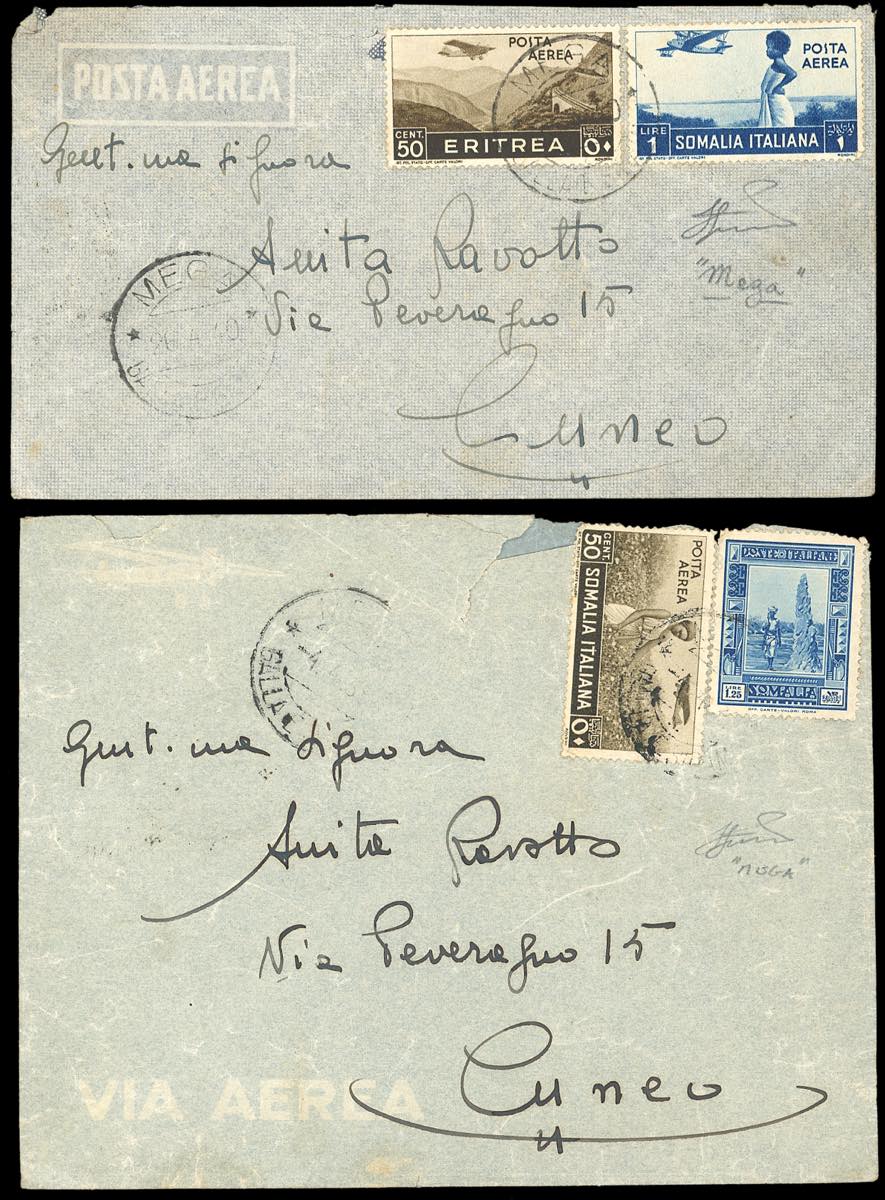 POSTA AEREA
POSTA
AEREA
CENT.
50
ERITREA
POSTA
AEREA
LIRE
1
SOMALIA ITALIANA
Gent.ma Signora
Anita Ravotto
Via Peveragno 15
Cuneo
"Mega"
MEGA
26.4.40
CENT.
50
SOMALIA ITALIANA
POSTA
AEREA
POSTE ITALIANE
LIRE
1.25
SOMALIA
OFF. CARTE-VALORI. ROMA
Gent.ma Signora
Anita Ravotto
Via Peveragno 15
Cuneo
"MEGA"
VIA AEREA